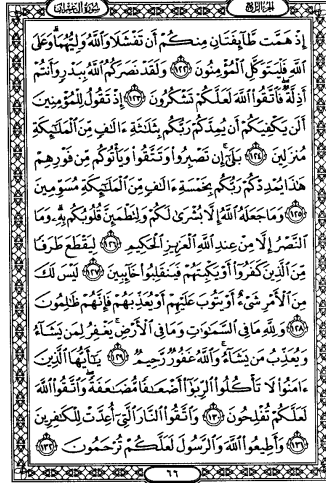 سورة آل عمران الجزء الرابع
إِذْ هَمَّت طَّآئِفَتَانِ مِنكُمْ أَن تَفْشَلَا وَٱللَّهُ وَلِيُّهُمَا وَعَلَى
ٱللَّهِ فَلْيَتَوَكَّلِ ٱلْمُؤْمِنُونَ ١٢٢ وَلَقَدْ نَصَرَكُمُ ٱللَّهُ بِبَدْرٍ وَأَنتُمْ
أَذِلَّةٌ فَٱتَّقُوا۟ ٱللَّهَ لَعَلَّكُمْ تَشْكُرُونَ ١٢٣ إِذْ تَقُولُ لِلْمُؤْمِنِينَ
أَلَن يَكْفِيَكُمْ أَن يُمِدَّكُمْ رَبُّكُم بِثَلَٰثَةِ ءَالَٰفٍ مِّنَ ٱلْمَلَٰٓئِكَةِ
مُنزَلِينَ ١٢٤ بَلَىٰٓ إِن تَصْبِرُوا۟ وَتَتَّقُوا۟ وَيَأْتُوكُم مِّن فَوْرِهِمْ
هَٰذَا يُمْدِدْكُمْ رَبُّكُم بِخَمْسَةِ ءَالَٰفٍ مِّنَ ٱلْمَلَٰٓئِكَةِ مُسَوِّمِينَ
١٢٥ وَمَا جَعَلَهُ ٱللَّهُ إِلَّا بُشْرَىٰ لَكُمْ وَلِتَطْمَئِنَّ قُلُوبُكُم بِهِۦ وَمَا
ٱلنَّصْرُ إِلَّا مِنْ عِندِ ٱللَّهِ ٱلْعَزِيزِ ٱلْحَكِيمِ ١٢٦ لِيَقْطَعَ طَرَفًا
مِّنَ ٱلَّذِينَ كَفَرُوٓا۟ أَوْ يَكْبِتَهُمْ فَيَنقَلِبُوا۟ خَآئِبِينَ ١٢٧ لَيْسَ لَكَ
مِنَ ٱلْأَمْرِ شَىْءٌ أَوْ يَتُوبَ عَلَيْهِمْ أَوْ يُعَذِّبَهُمْ فَإِنَّهُمْ ظَٰلِمُونَ
١٢٨ وَلِلَّهِ مَا فِى ٱلسَّمَٰوَٰتِ وَمَا فِى ٱلْأَرْضِ يَغْفِرُ لِمَن يَشَآءُ
وَيُعَذِّبُ مَن يَشَآءُ وَٱللَّهُ غَفُورٌ رَّحِيمٌ ١٢٩ يَٰٓأَيُّهَا ٱلَّذِينَ
ءَامَنُوا۟ لَا تَأْكُلُوا۟ ٱلرِّبَوٰٓا۟ أَضْعَٰفًا مُّضَٰعَفَةً وَٱتَّقُوا۟ ٱللَّهَ
لَعَلَّكُمْ تُفْلِحُونَ ١٣٠ وَٱتَّقُوا۟ ٱلنَّارَ ٱلَّتِىٓ أُعِدَّتْ لِلْكَٰفِرِينَ
١٣١ وَأَطِيعُوا۟ ٱللَّهَ وَٱلرَّسُولَ لَعَلَّكُمْ تُرْحَمُونَ ١٣٢
٦٦